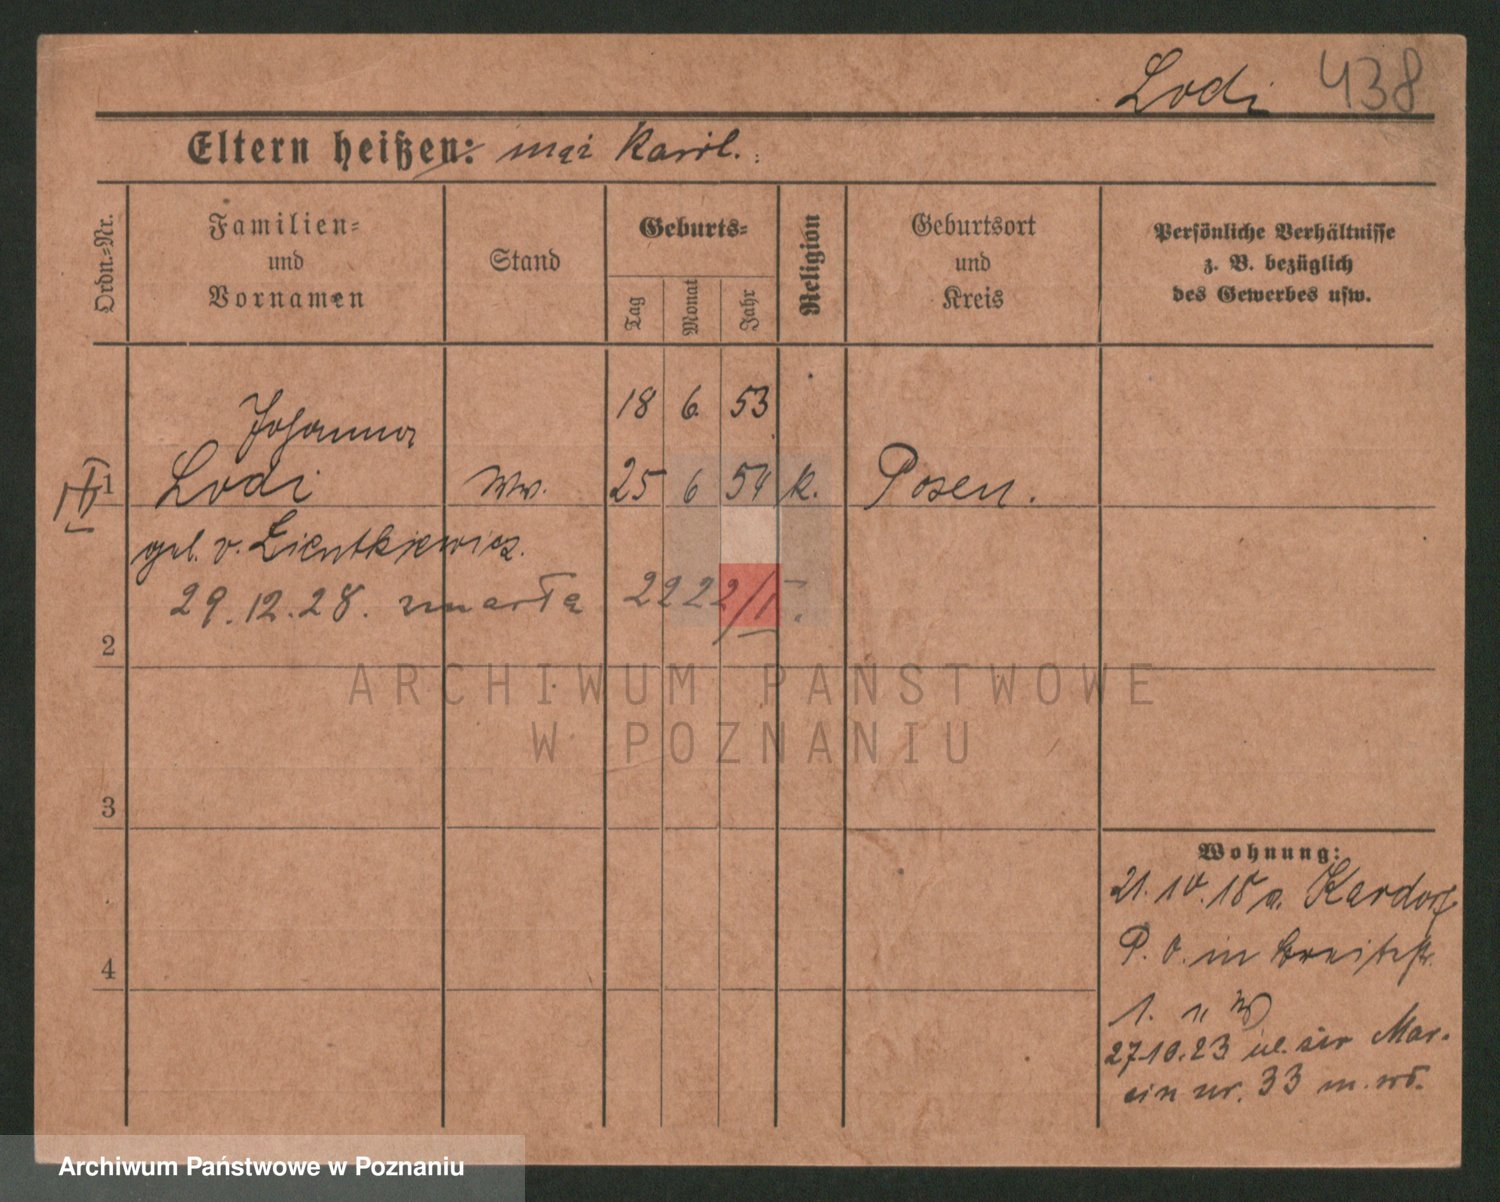 Lodi 438
Eltern heißen: mąż Karol.
Ordn.-Nr.
Familien-
und
Vornamen
Stand
Geburts-
Tag
Monat
Jahr
Religion
Geburtsort
und
Kreis
Persönliche Verhältnisse
z. B. bezüglich
des Gewerbes usw.
Johanna 18 6. 53
1 Lodi Ww. 25 6 54 k. Posen.
geb. v.
29.12.28. zmarła 2222/I.
2
3
4
Wohnung:
21.10.18 a. Kardorf
P. O. in Breitestr.
1. n W
27.10.23 ul. św Mar-
cin nr. 33 m.
ARCHIWUM PAŃSTWOWE
W POZNANIU
Archiwum Państwowe w Poznaniu